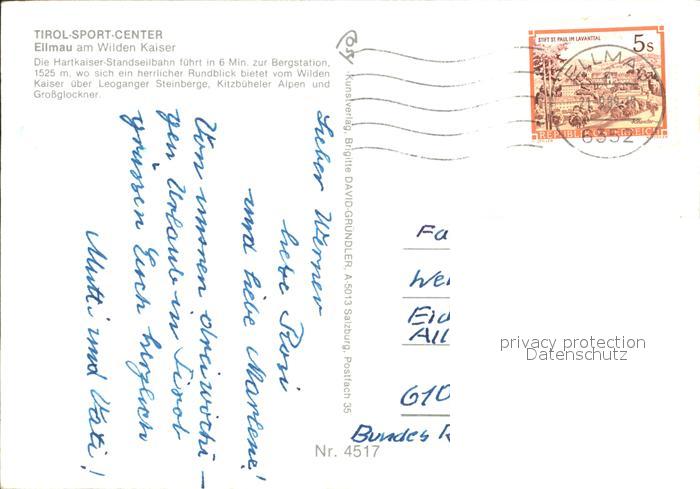 TIROL-SPORT-CENTER
Ellmau am Wilden Kaiser
Die Hartkaiser-Standseilbahn führt in 6 Min. zur Bergstation,
1525 m, wo sich ein herrlicher Rundblick bietet vom Wilden
Kaiser über Leoganger Steinberge, Kitzbüheler Alpen und
Großglockner.
Lieber Werner
liebe Rosi
und liebe Marlene!
Von unseren dreiwöchi-
gen Urlaub in Tirol
grüssen Euch herzlich
Mutti und Vati!
Kunstverlag, Brigitte DAVID-GRÜNDLER, A-5013 Salzburg, Postfach 35
Nr. 4517
STIFT ST. PAUL IM LAVANTTAL
5s
REPUBLIK ÖSTERREICH
ELLMAU
6352
Fa
We
Eid
All
610
Bundes R
privacy protection
Datenschutz